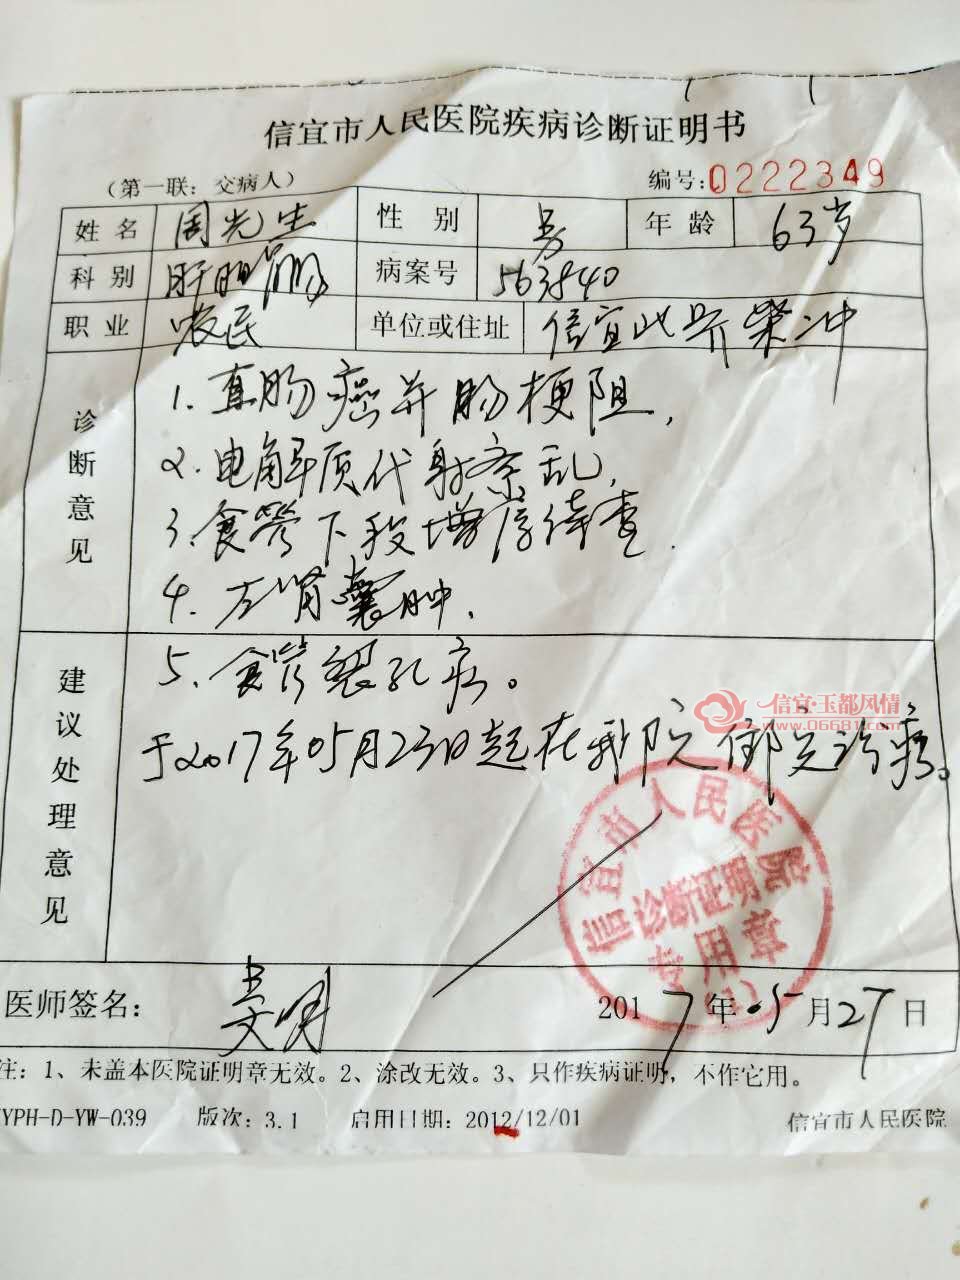 信宜市人民医院疾病诊断证明书
(第一联：交病人) 编号:0222349
姓名 周光生 性别 男 年龄 63岁
科别 肝胆 病案号 563840
职业 农民 单位或住址 信宜
诊断意见
1. 直肠癌并肠梗阻,
2. 电解质代谢紊乱,
3. 食管下段增厚待查.
4. 左肾囊肿.
建议处理意见
5. 食管裂孔疝。
信宜·玉都风情
www.06681.com
于2017年05月23日起在我院住院治疗。
信宜市人民医院
诊断证明
专用章
医师签名: 2017年05月27日
注：1、未盖本医院证明章无效。2、涂改无效。3、只作疾病证明，不作它用。
YPH-D-YW-039 版次：3.1 启用日期：2012/12/01 信宜市人民医院